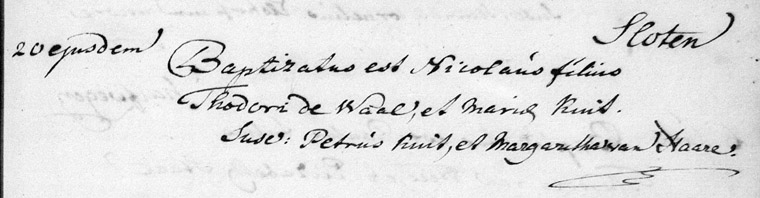 Sloten
20 ejusdem Baptizatus est Nicolaús filius
Thodori de Waal, et Mariæ Kuit.
Susc: Petrús Kuit, et Margaretha van Haare.